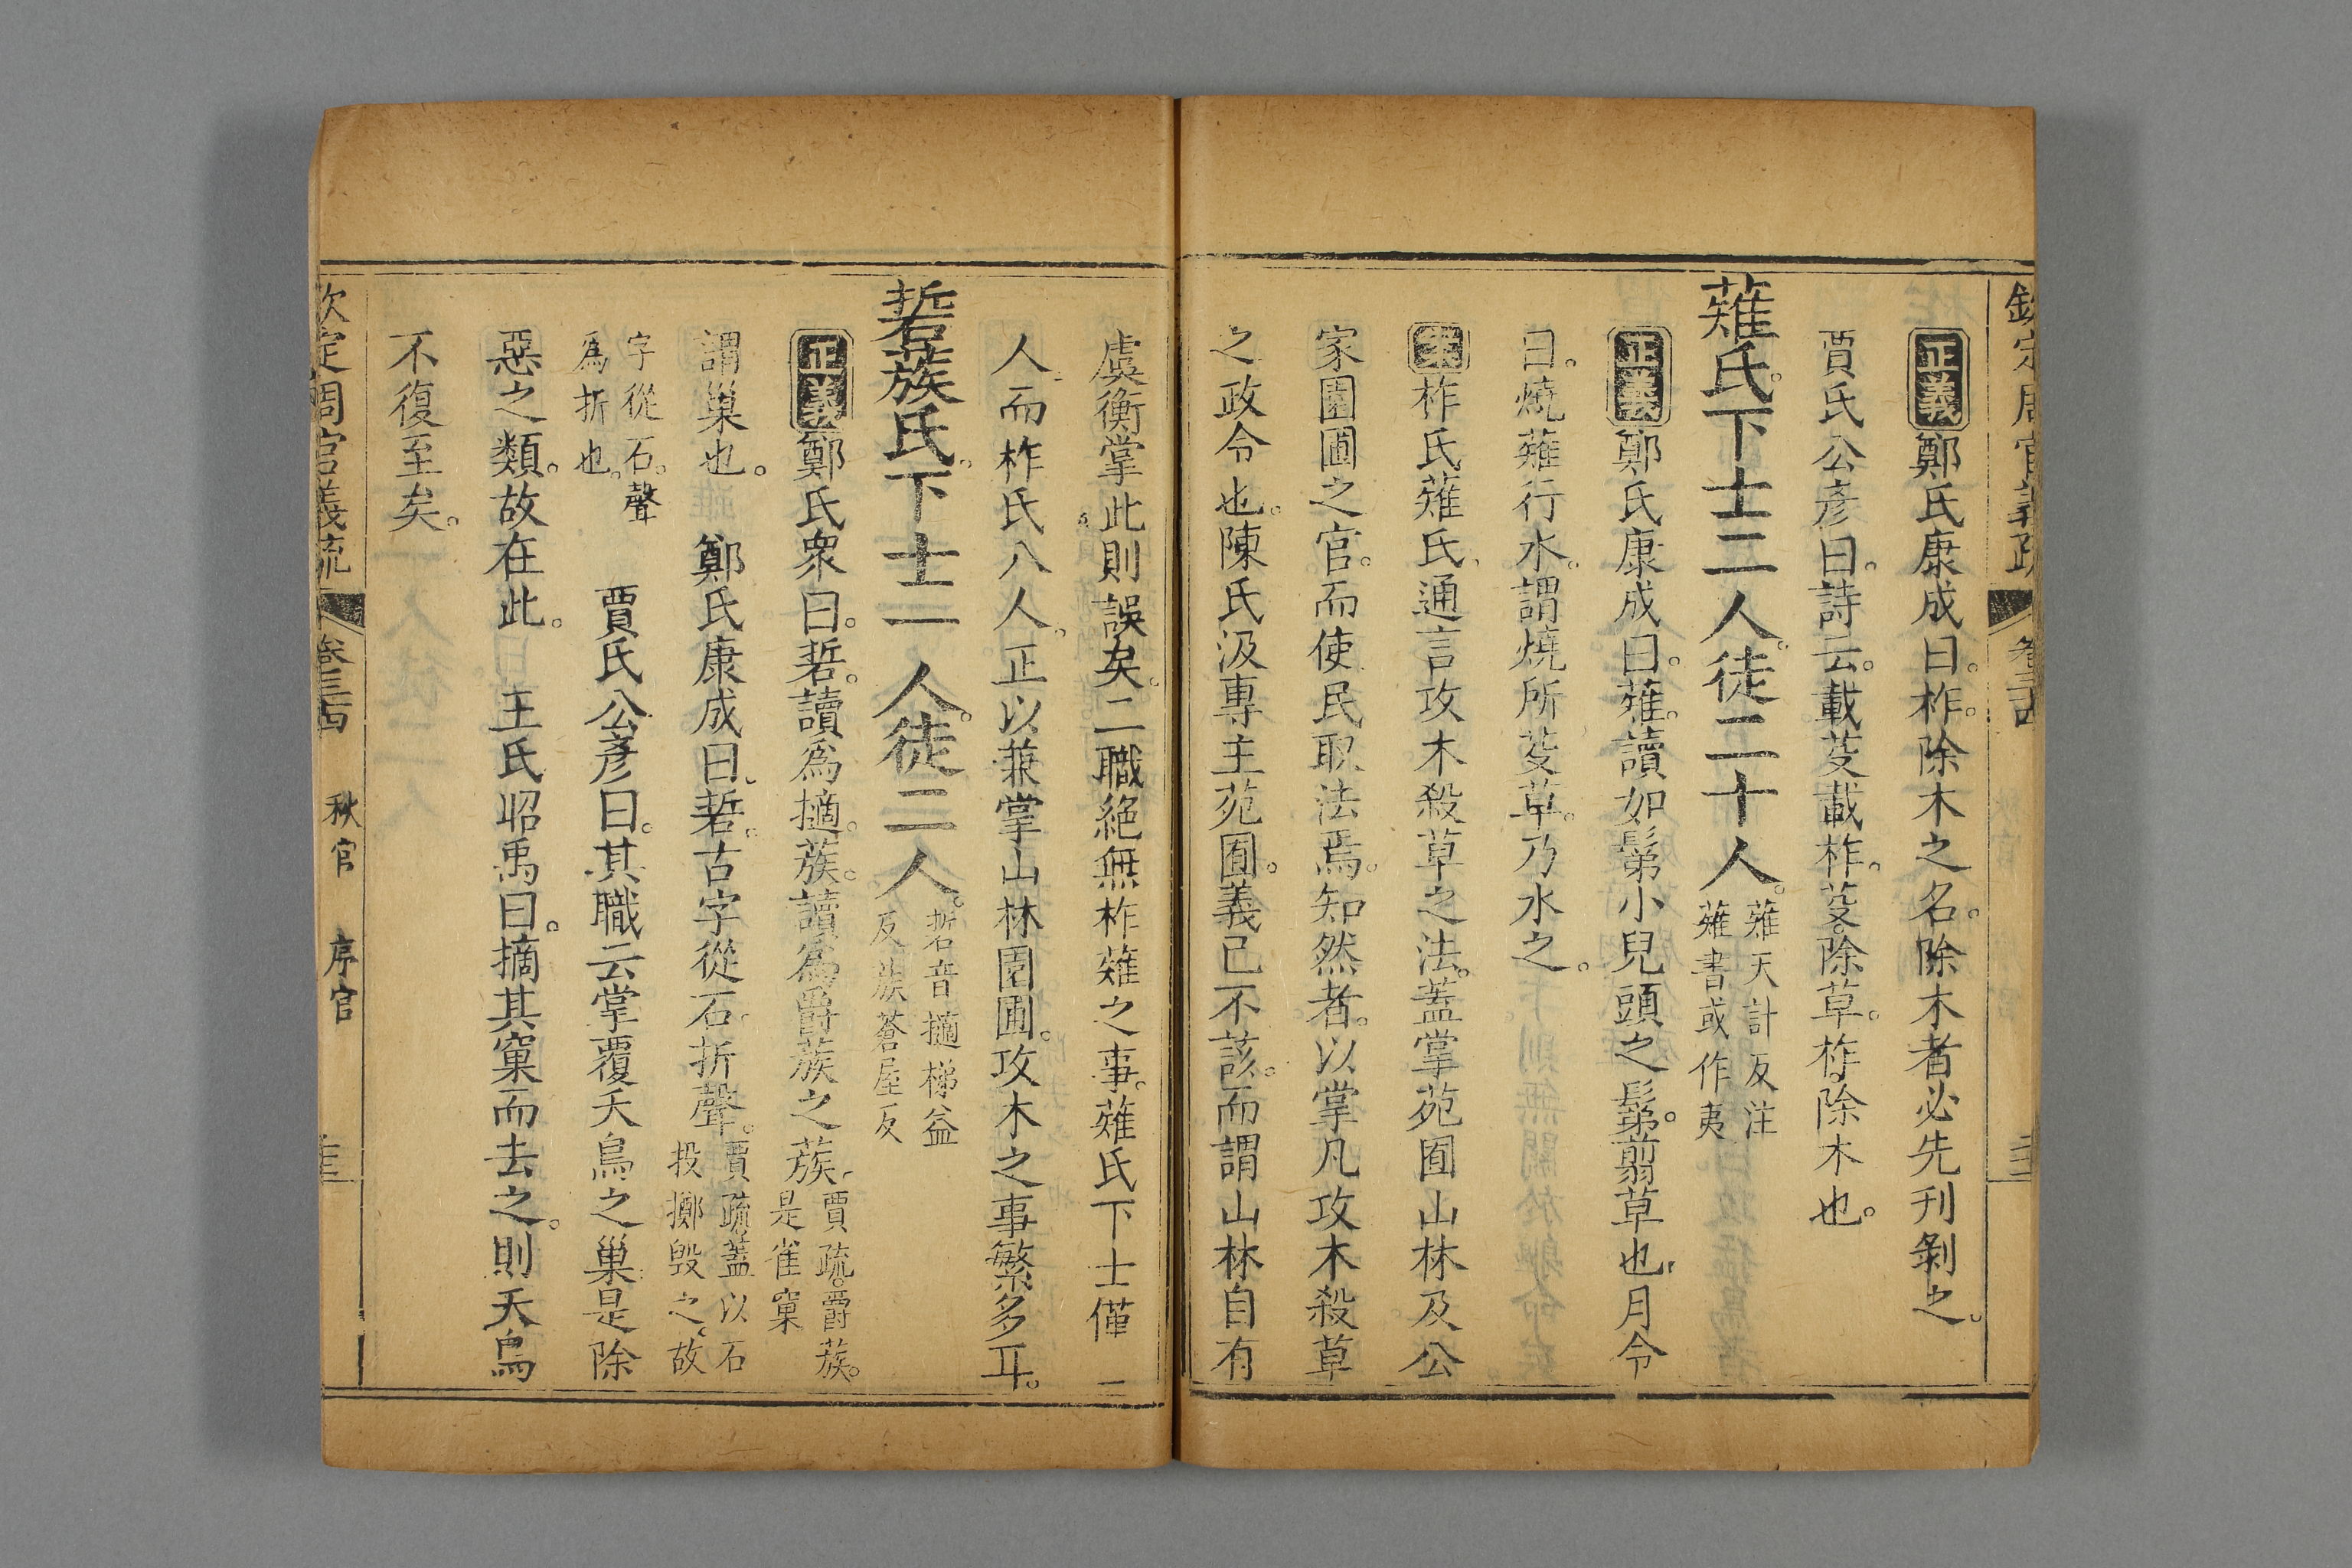 欽定周官義疏 卷三十四
正義鄭氏康成曰。柞。除木之名。除木者必先刋剝之。
賈氏公彥曰。詩云。載芟載柞。芟。除草。柞。除木也。
薙氏。下士二人。徒二十人。薙天計反注
薙書或作夷
正義鄭氏康成曰。薙。讀如鬀小兒頭之鬀。翦草也。月令
曰。燒薙行水。謂燒所芟草。乃水之。
案柞氏薙氏。通言攻木殺草之法。蓋掌苑囿山林及公
家園圃之官。而使民取法焉。知然者。以掌凡攻木殺草
之政令也。陳氏汲專主苑囿。義已不該。而謂山林自有
虞衡掌此則誤矣。二職絕無柞薙之事。薙氏下士僅二
人而柞氏八人。正以兼掌山林園圃。攻木之事繁多耳。
硩蔟氏。下士一人。徒二人。硩音擿梯益
反蔟蒼屋反
正義鄭氏衆曰。硩。讀爲擿。蔟。讀爲爵蔟之蔟。賈疏。爵蔟。
是雀窠
謂巢也。 鄭氏康成曰。硩。古字從石。折聲。賈疏。蓋以石
投擲毁之。故
字從石。聲
爲折也。 賈氏公彥曰。其職云掌覆夭鳥之巢是除
惡之類。故在此。 王氏昭禹曰。摘其窠而去之。則夭鳥
不復至矣。
欽定周官義疏 卷三十四 秋官 序官